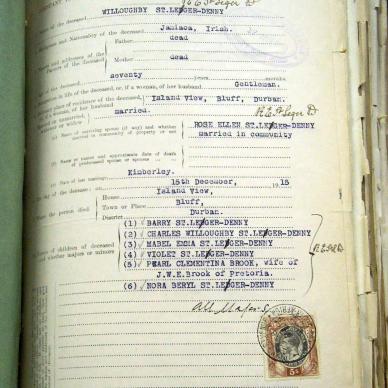 WILLOUGHBY ST.LEGER-DENNY
of the deceased,
Jamiaca, Irish.
and Nationality of the deceased,
Father,
dead
and addresses of the
Parents of the deceased
Mother
dead
of the deceased,
seventy years, months.
in life of the deceased, or, if a woman, of her husband Gentleman.
place of residence of the deceased, Island View, Bluff, Durban.
married.
or unmarried,
widower or widow
(a) Name of surviving spouse (if any) and whether married in community of property or not
ROSE ELLEN ST.LEGER-DENNY
married in community
(b) Name or names and approximate date of death of predeceased spouse or spouses
(c) Place of last marriage,
Kimberley.
day of the decease: on the 15th December, 1915
House Island View,
the person died Town or Place Bluff,
District Durban.
Names of children of deceased and whether majors or minors
(1) BARRY ST.LEGER-DENNY
(2) CHARLES WILLOUGHBY ST.LEGER-DENNY
(3) MABEL EMMA ST.LEGER-DENNY
(4) VIOLET ST.LEGER-DENNY
(5) PEARL CLEMENTINA BROOK, wife of
J.W.E.Brook of Pretoria.
(6) NORA BERYL ST.LEGER-DENNY
All Majors